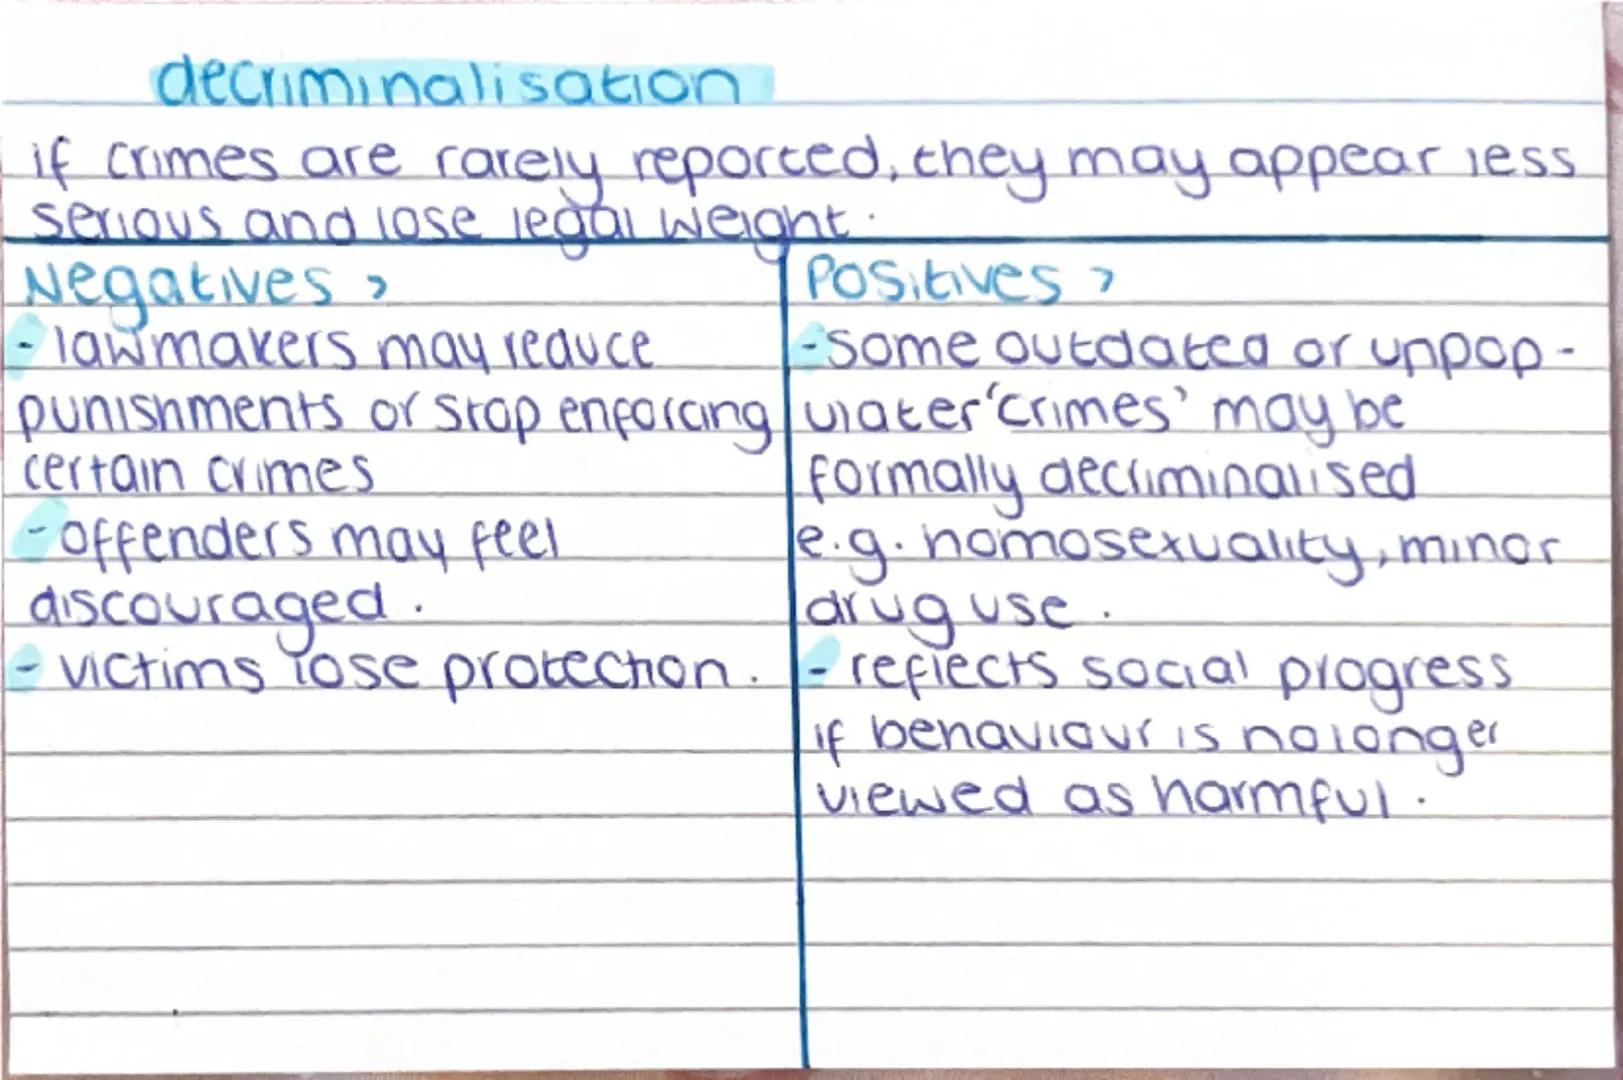 decriminalisation
if crimes are rarely reported, they may appear less
serious and lose legal weight.
Negatives >
- lawmakers may reduce
punishments or stop enforcing
certain crimes
- offenders may feel
discouraged.
- victims lose protection.
Positives >
- some outdated or unpop-
ulater 'crimes' may be
formally decriminalised
e.g. homosexuality, minor
drug use.
- reflects social progress
if behaviour is no longer
viewed as harmful.